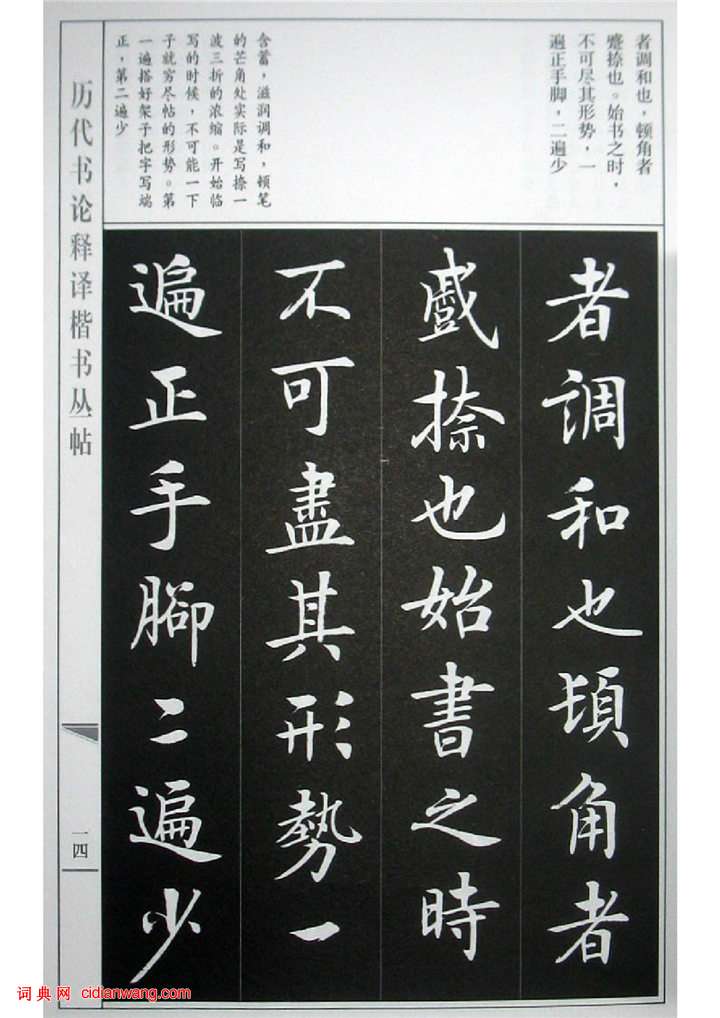 者调和也,顿角者
蹙捺也。始书之时,
不可尽其形势,一
遍正手脚,二遍少
含蓄,滋润调和,顿笔
的芒角处实际是写捺一
波三折的浓缩。开始临
写的时候,不可能一下
子就穷尽帖的形势。第
一遍搭好架子把字写端
正,第二遍少
者調和也頓角者
蹙捺也始書之時
不可盡其形勢一
遍正手腳二遍少
历代书论释译楷书丛帖
一四
词典网 cidianwang.com